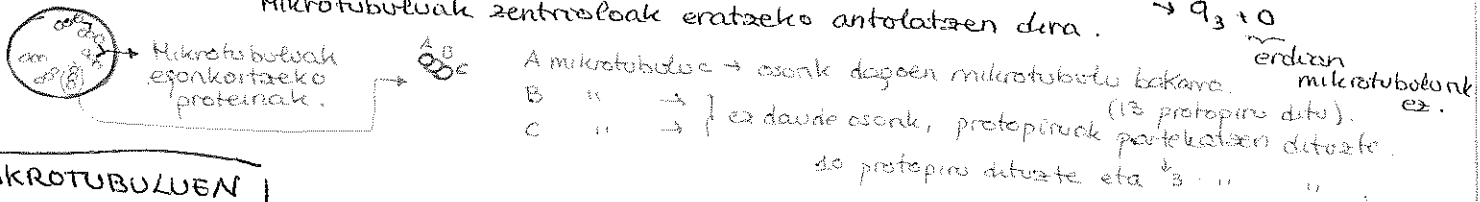 Mikrotubuluak zentrioloak eratzeko antolatzen dira. → 9₃ + 0
erdian mikrotubulurik ez.
Mikrotubuluak egonkortzeko proteinak.
A B C
A mikrotubulua → osorik dagoen mikrotubulu bakarra. (13 protopiru ditu).
B " →
C " → } ez daude osorik, protopiruak partekatzen dituzte.
10 protopiru dituzte eta 3 " "
KROTUBULUEN